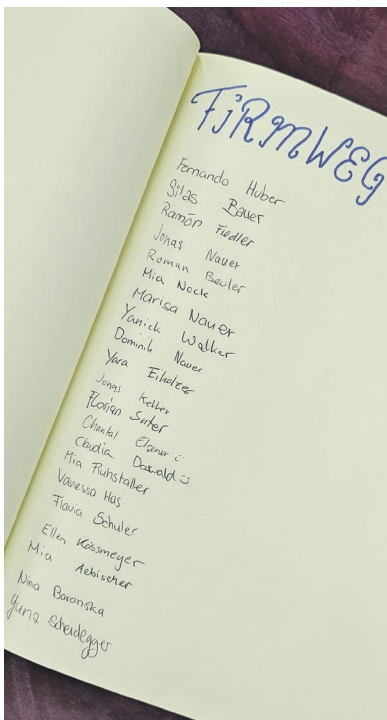 FiRMWEG
Fernando Huber
Gilas Bauer
Ramón Fiedler
Jonas Nauer
Roman Beeler
Mia Nock
Marisa Nauer
Yanick Walker
Dominik Nauer
Yara Eiholzer
Jonas Keller
Florian Suter
Chantal Elsener :)
Claudia Doswald :)
Mia Ruhstaller
Vanessa Has
Flavia Schuler
Ellen Kössmeyer
Mia Aebischer
Nina Baranska
Yuna Scheidegger